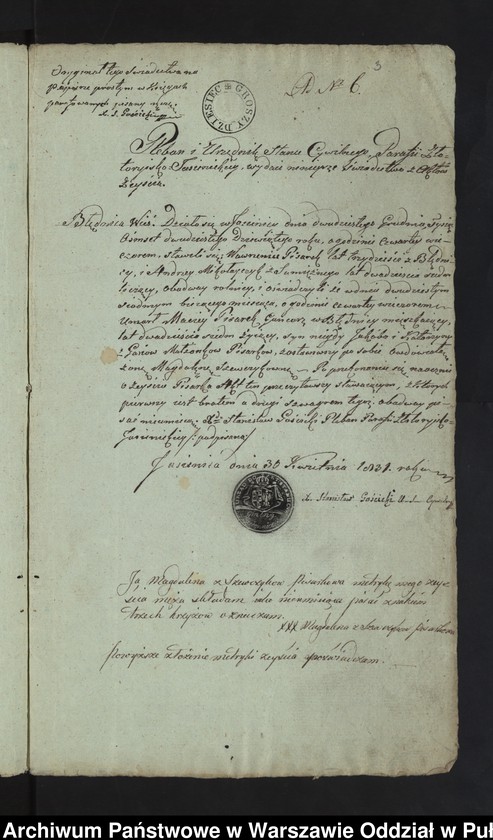 Oryginał tego świadectwa na
papierze prostym w Księgach
pisany
X. S. Gościcki
3
Ad N° 6.
DZIESIĘĆ GROSZY
Pleban i Urzędnik Stanu Cywilnego, Parafii Zło-
toryisko Jasienickiey, wydaie ninieysze Świadectwo z Aktów
Zeyścia.
Błędnica Wieś. Działo się w Jasienicy dnia dwudziestego Grudnia Tysiąc
Ośmset dwudziestego Dziewiątego roku, o godzinie czwarty wie-
czorem, stawili się Wawrzeniec Pisarek lat trzydzieści z Błędni-
cy, i Andrzey lat dwadzieścia siedm
liczący, obadwa rolnicy, i oświadczyli iż w dniu dwudziestym
siódmym bieżącego miesiąca, o godzinie czwarty wieczorem
Umarł Maciey Pisarek w Błędnicy mieszkaiący,
lat dwadzieścia siedm liczący, syn niegdy Jakóba i Katarzyny
Małżonków Pisarków, zostawiwszy po sobie owdowiałą
żonę Magdalenę. Po przekonaniu się naocznie
o zeyściu Pisarka Akt ten przeczytawszy stawaiącym, z których
pierwszy iest bratem a drugi szwagrem tegoż obadway pi-
sać nieumieią. X. Stanisław Gościcki Pleban Parafii Złotoryisko-
Jasienickiey podpisano
Jasienica dnia 30 Kwietnia 1831 roku
X. Stanisław Gościcki U. S. Cywilnego
Ja Magdalena z Szewczyków Pisarkowa metrykę mego zey-
ścia męża składam iako nieumieiąca pisać znakiem
trzech krzyżów oznaczam.
XXX Magdalena z Szewczyków Pisarkowa
Powyższe złożenie metryki zeyścia poświadczam.
Archiwum Państwowe w Warszawie Oddział w Puł